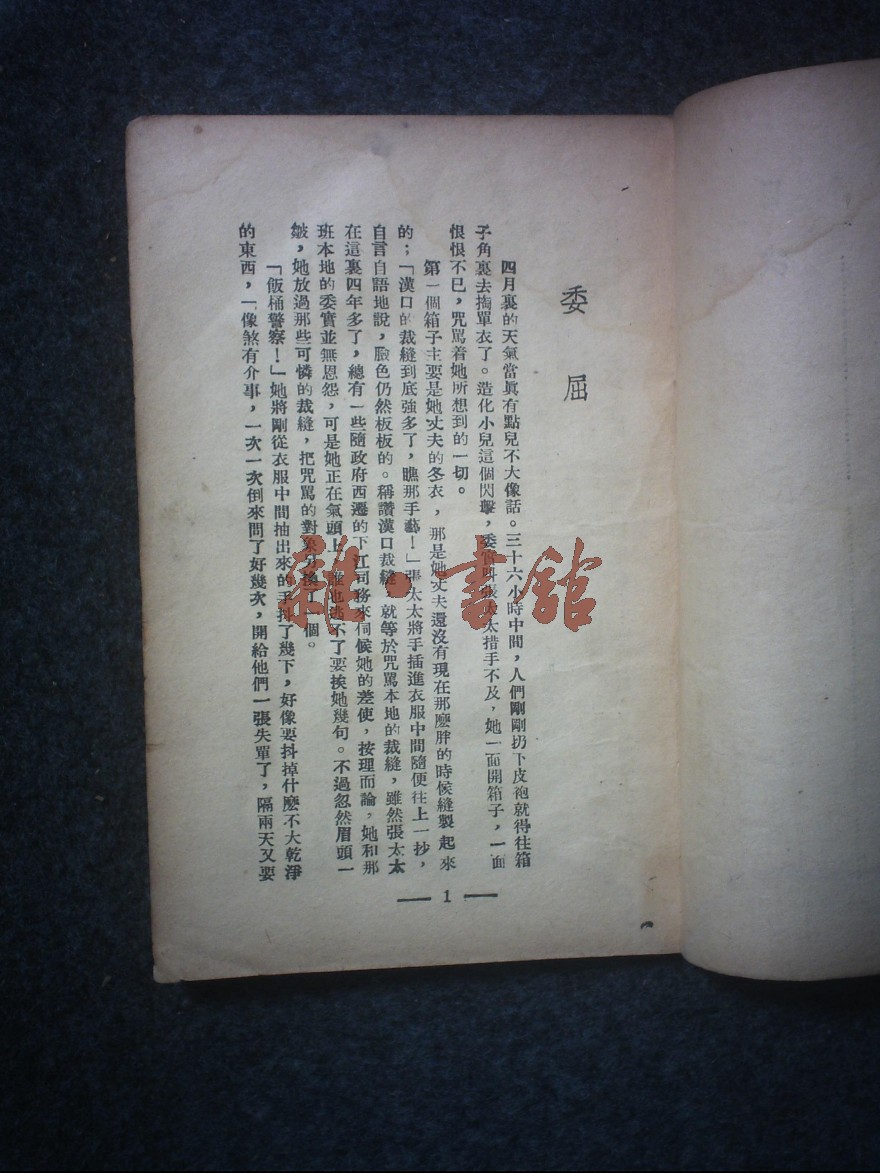 委屈
四月裏的天氣當眞有點兒不大像話。三十六小時中間，人們剛剛扔下皮袍就得往箱
子角裏去掏單衣了。造化小兒這個閃擊，委實叫張太太措手不及，她一面開箱子，一面
恨恨不已，咒罵着她所想到的一切。
第一個箱子主要是她丈夫的冬衣，那是她丈夫還沒有現在那麽胖的時候縫製起來
的；「漢口的裁縫到底強多了，瞧那手藝！」張太太將手插進衣服中間隨便往上一抄，
自言自語地說，臉色仍然板板的。稱讚漢口裁縫 就等於咒罵本地的裁縫，雖然張太太
在這裏四年多了，總有一些隨政府西遷的下江司務來伺候她的差使，按理而論，她和那
班本地的委實並無恩怨，可是她正在氣頭上 誰也逃不了要挨她幾句。不過忽然眉頭一
皺，她放過那些可憐的裁縫，把咒罵的對象另換了一個。
「飯桶警察！」她將剛從衣服中間抽出來的手抖了幾下，好像要抖掉什麽不大乾淨
的東西，「像煞有介事，一次一次倒來問了好幾次，開給他們一張失單了，隔兩天又要
— 1 —
雜·書館